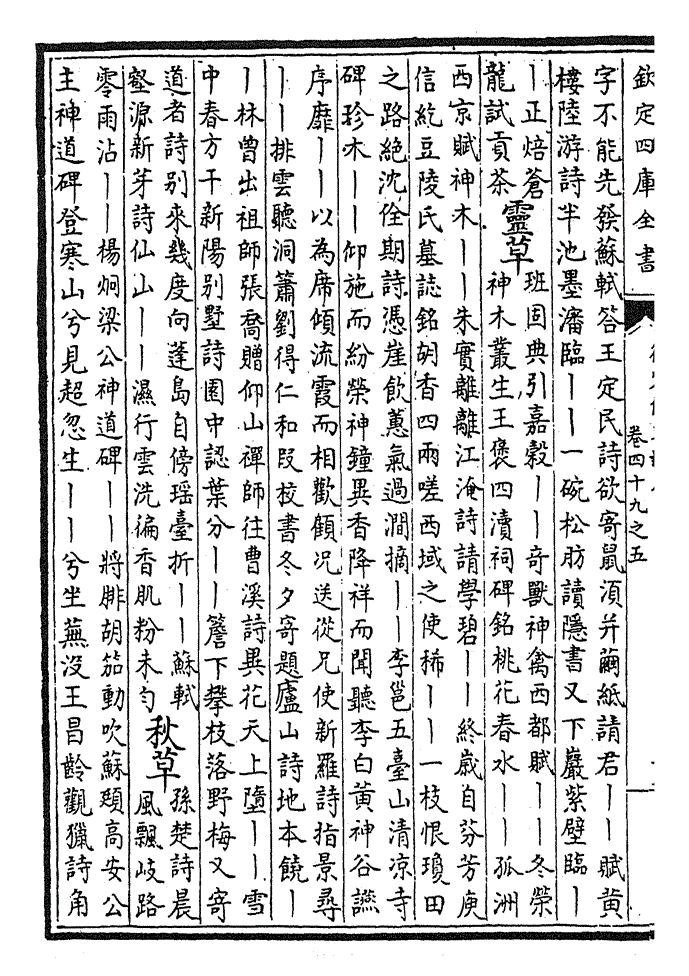 欽定四庫全書
卷四十九之五
字不能先發蘇軾答王定民詩欲寄鼠須并蠒紙請君丨丨賦黄
樓陸游詩半池墨瀋臨丨丨一碗松肪讀隱書又下巖紫壁臨丨
丨正焙蒼
龍試貢茶
靈草
班固典引嘉穀丨丨奇獸神禽西都賦丨丨冬榮
神木叢生王褒四瀆祠碑銘桃花春水丨丨孤洲
西京賦神木丨丨朱實離離江淹詩請學碧丨丨終歲自芬芳庾
信紇豆陵氏墓誌銘胡香四兩嗟西域之使稀丨丨一枝恨瓊田
之路絶沈佺期詩憑崖飲蕙氣過澗摘丨丨李邕五臺山清凉寺
碑珍木丨丨仰施而紛榮神鐘異香降祥而聞聽李白黄神谷讌
序靡丨丨以為席傾流霞而相歡顧况送從兄使新羅詩指景尋
丨丨排雲聽洞簫劉得仁和段校書冬夕寄題廬山詩地本饒丨
丨林曾出祖師張喬贈仰山禪師往曹溪詩異花天上墮丨丨雪
中春方干新陽别墅詩園中認葉分丨丨簷下攀枝落野梅又寄
道者詩别來幾度向蓬島自傍瑶臺折丨丨蘇軾
壑源新芽詩仙山丨丨濕行雲洗徧香肌粉未勻
秋草
孫楚詩晨
風飄岐路
零雨沾丨丨楊炯梁公神道碑丨丨將腓胡笳動吹蘇頲高安公
主神道碑登寒山兮見超忽生丨丨兮坐蕪没王昌齡觀獵詩角